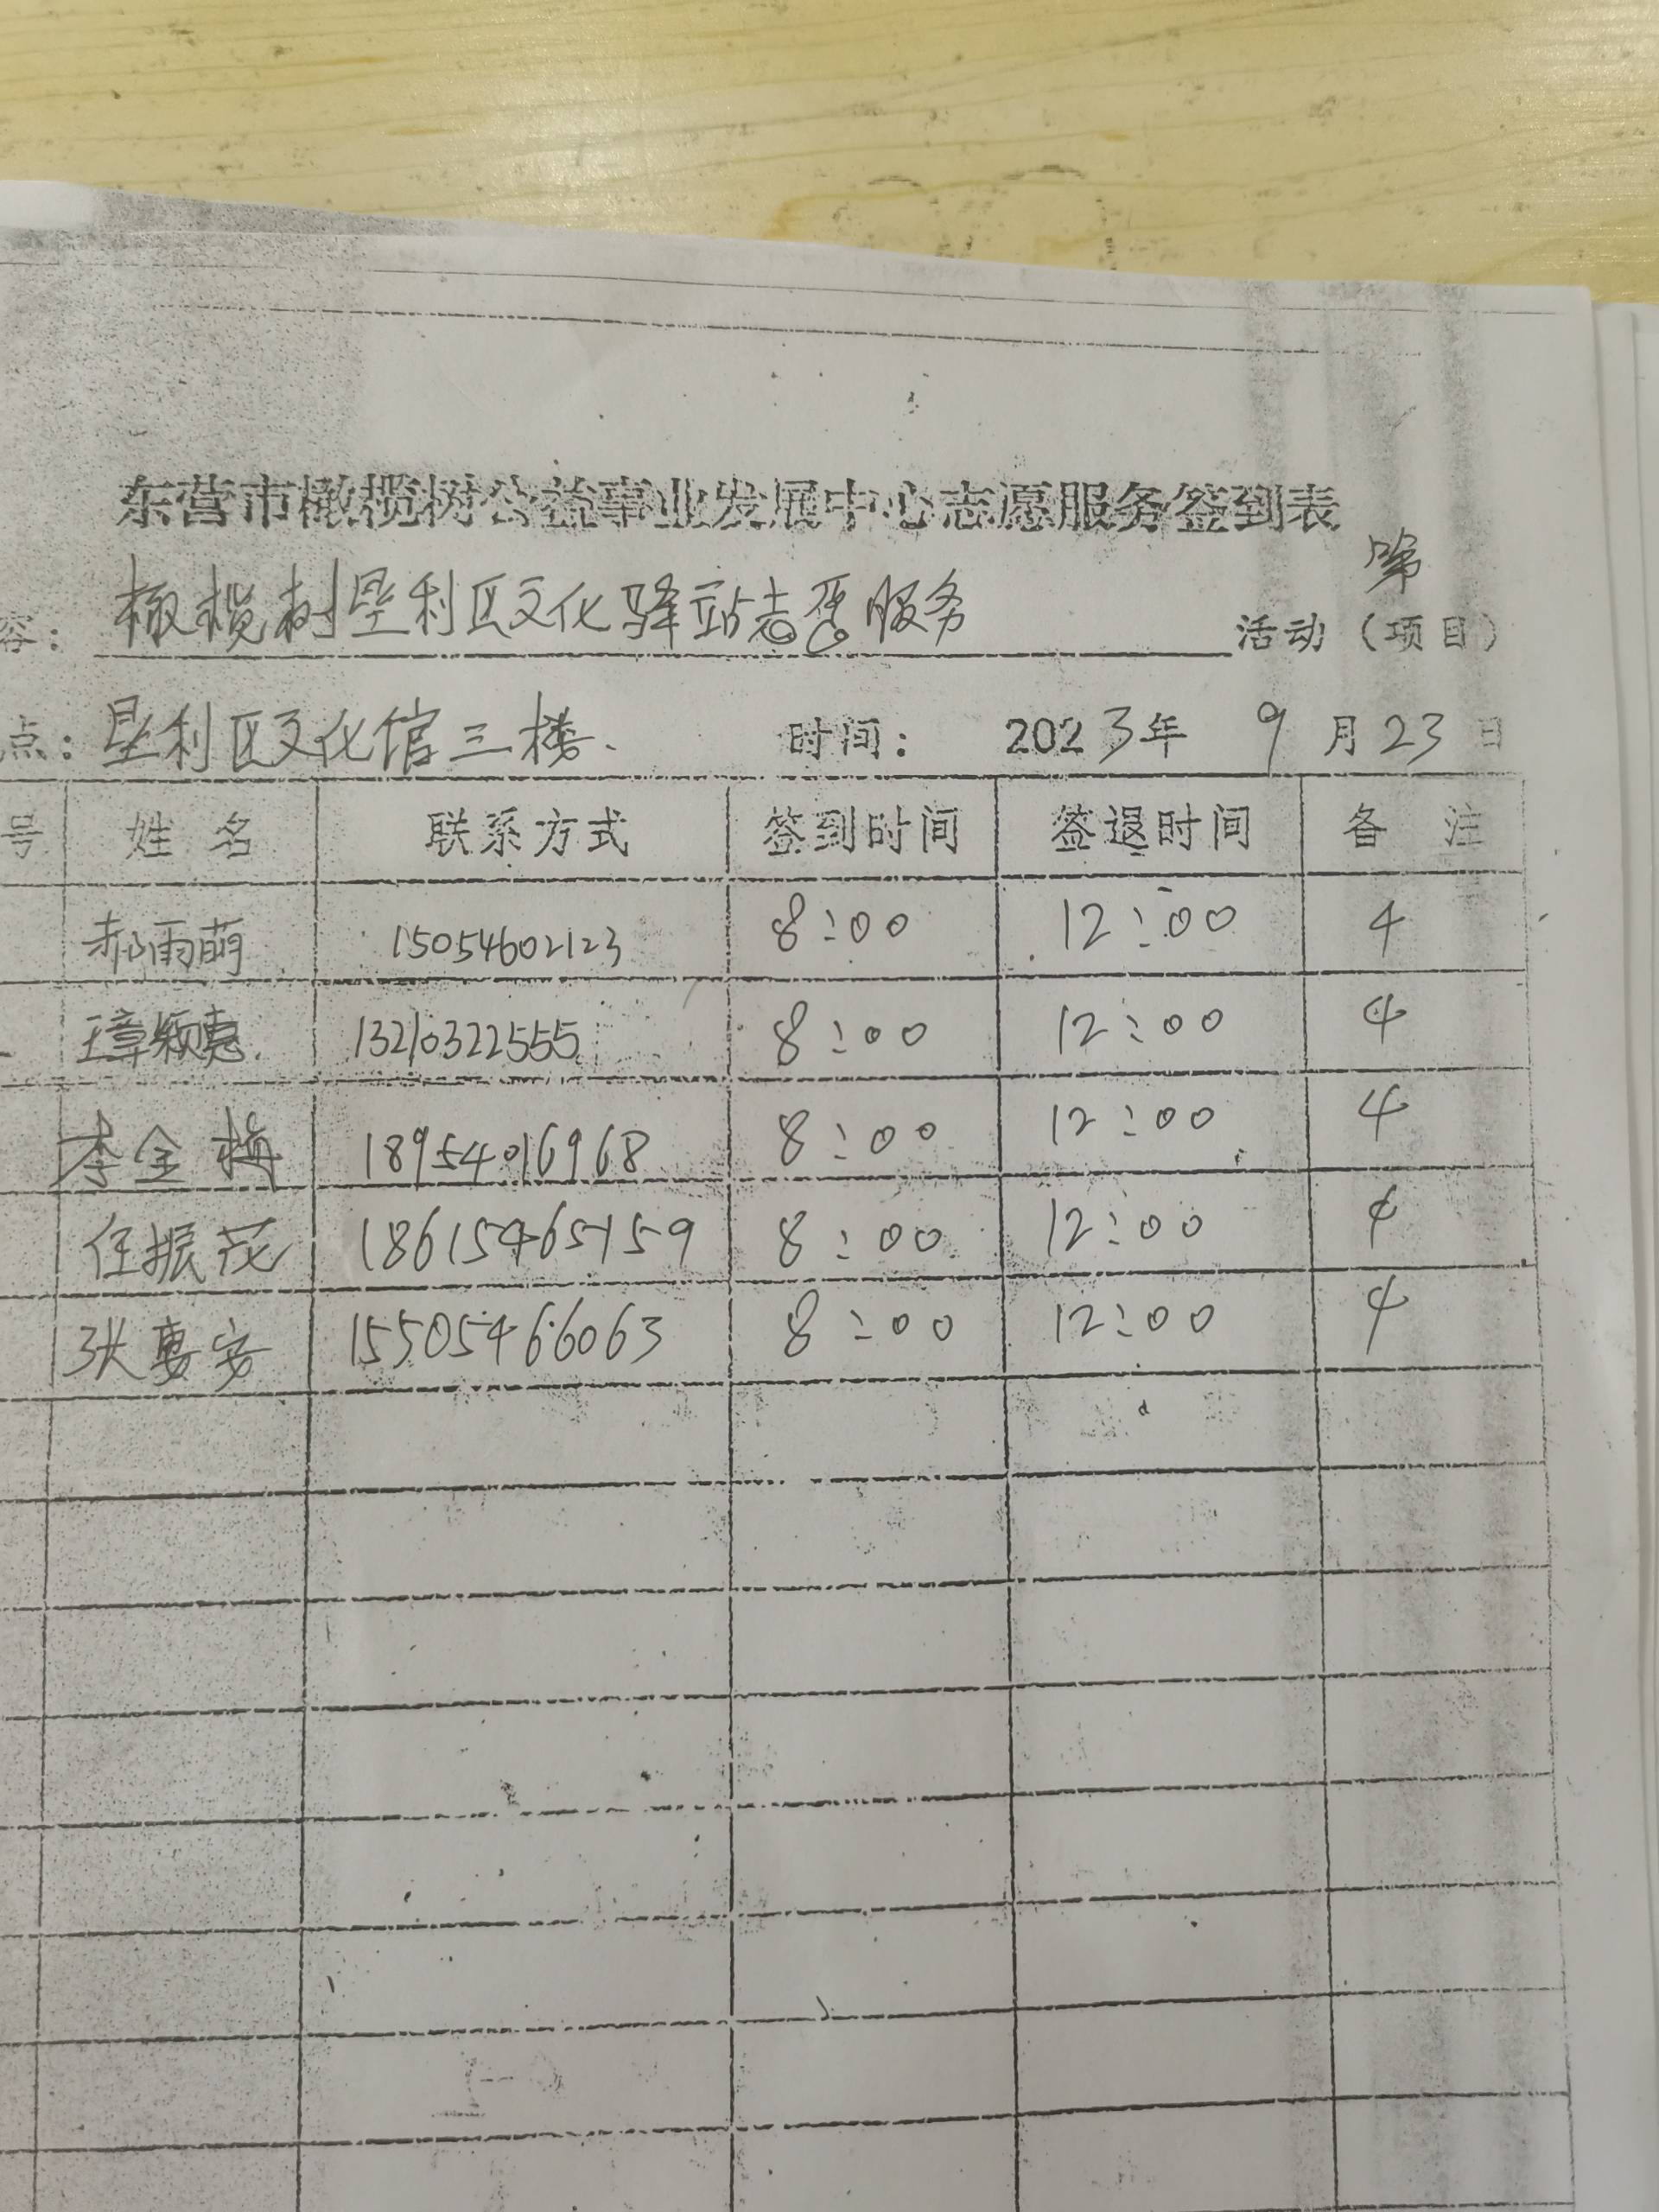 东营市橄榄树公益事业发展中心志愿服务签到表
第
容: 橄榄树垦利区文化驿站志愿服务 活动(项目)
点: 垦利区文化馆三楼. 时间: 2023年 9月23日
号 姓 名 联系方式 签到时间 签退时间 备 注
郝雨萌 15054602123 8:00 12:00 4
13210322555 8:00 12:00 4
李金梅 18954016968 8:00 12:00 4
任振花 18615465159 8:00 12:00 4
张惠安 15505466063 8:00 12:00 4